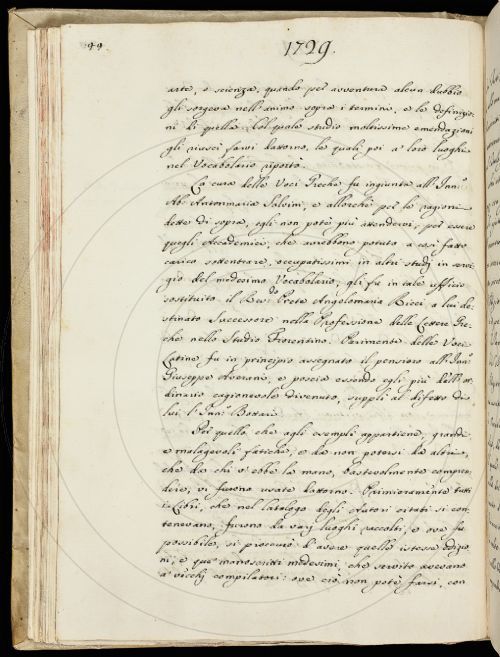 44
1729.
arte, e scienza, quando per avventura alcun dubbio
gli sorgeva nell'animo sopra i termini, e le definizio-
ni di quella. Col quale studio moltissime emendazioni
gli riuscì farvi dattorno, le quali poi a' loro luoghi
nel Vocabolario riportò.
La cura delle Voci Greche fu ingiunta all'Inn.
Ab. Antonmaria Salvini, e allorchè per le ragioni
dette di sopra, egli non potè più attendervi, per essere
quegli Accademici, che avrebbono potuto a così fatto
carico sottentrare, occupatissimi in altri studj in servi-
gio del medesimo Vocabolario, gli fu in tale uffizio
sostituito il Prete Angelomaria Ricci a lui de-
stinato Successore nella Professione delle Lettere Gre-
che nello Studio Fiorentino. Parimente delle Voci
Latine fu in principio assegnato il pensiero all'Inn.
Giuseppe Averani, e poscia essendo egli più dell'or-
dinario cagionevole divenuto, supplì al difetto di
lui l'Inn. Bottari.
Per quello, che agli esempli appartiene, grandi
e malagevoli fatiche, e da non potersi da altri,
che da chi v'ebbe la mano, bastevolmente compren-
dere, vi furono usate dattorno. Primieramente tutti
i Libri, che nel Catalogo degli Autori citati si con-
tenevano, furono da varj luoghi raccolti, e ove fu
possibile, si procurò d'avere quelle istesse edizio-
ni, e que' manoscritti medesimi, che servito avevano
a' vecchj compilatori: ove ciò non potè farsi, con